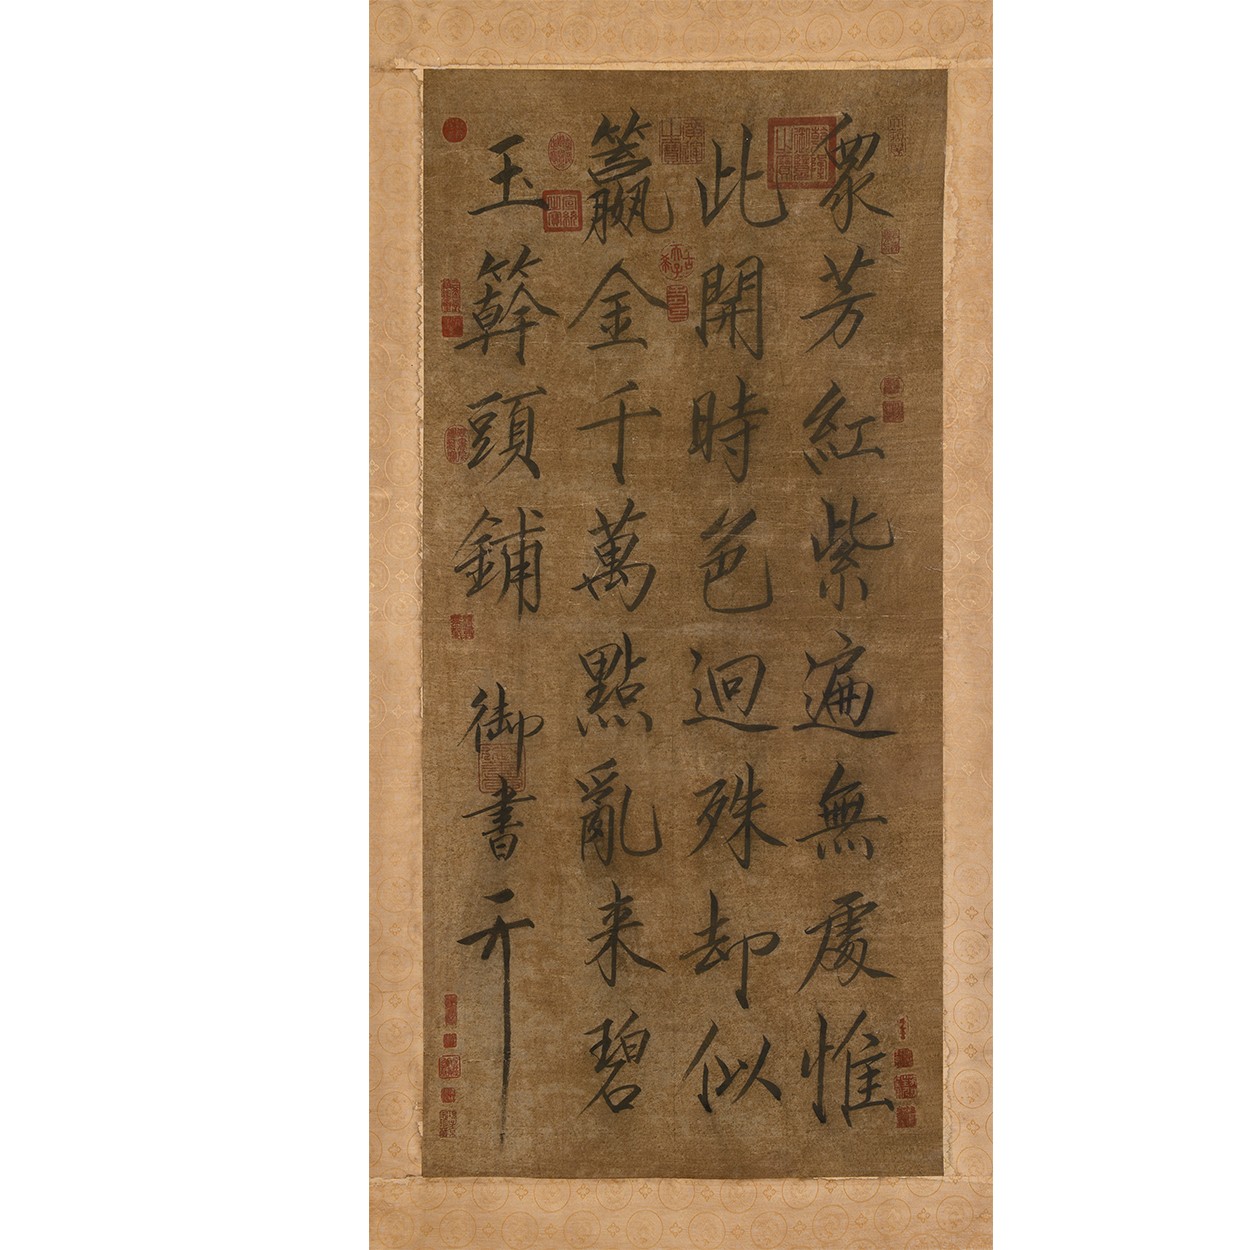 衆芳紅紫遍無處惟
此開時色迥殊却似
籯金千萬點亂来碧
玉簳頭鋪
御書